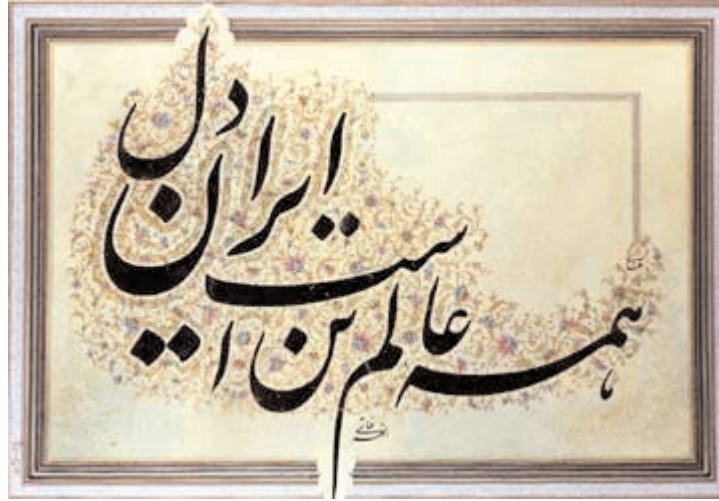 همه عالم تن است ایران دل